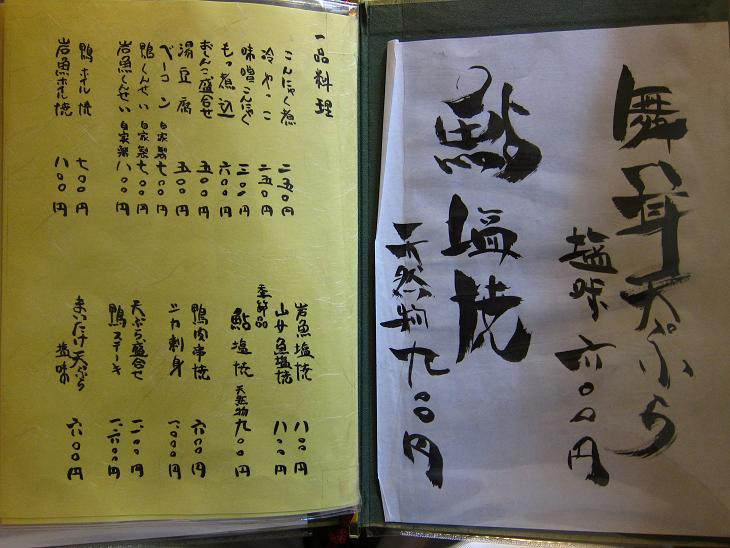 舞茸天ぷら
塩味 六〇〇円
鮎塩焼
天然物 九〇〇円
一品料理
こんにゃく煮 二五〇円
冷やっこ 二五〇円
味噌こんにゃく 三〇〇円
もつ煮込 六〇〇円
おしんこ盛合せ 五〇〇円
湯豆腐 五〇〇円
ベーコン 自家製 七〇〇円
鴨くんせい 自家製 七〇〇円
岩魚くんせい 自家製 八〇〇円
鴨ホイル焼 七〇〇円
岩魚ホイル焼 八〇〇円
岩魚塩焼 八〇〇円
山女魚塩焼 八〇〇円
季節品
鮎塩焼 天然物 九〇〇円
鴨肉串焼 六〇〇円
シカ刺身 一、〇〇〇円
天ぷら盛合せ 一、二〇〇円
鴨ステーキ 一、六〇〇円
まいたけ天ぷら 塩味 六〇〇円